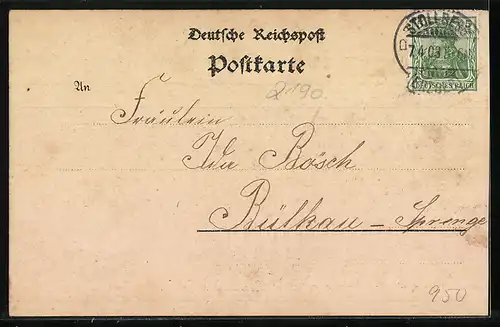 Deutsche Reichspost
Postkarte
STOLLBERG
7.4.03
DEUTSCHES REICH
An
2190
Fräulein
Ida Bösch
Bülkau - Sprenge
950